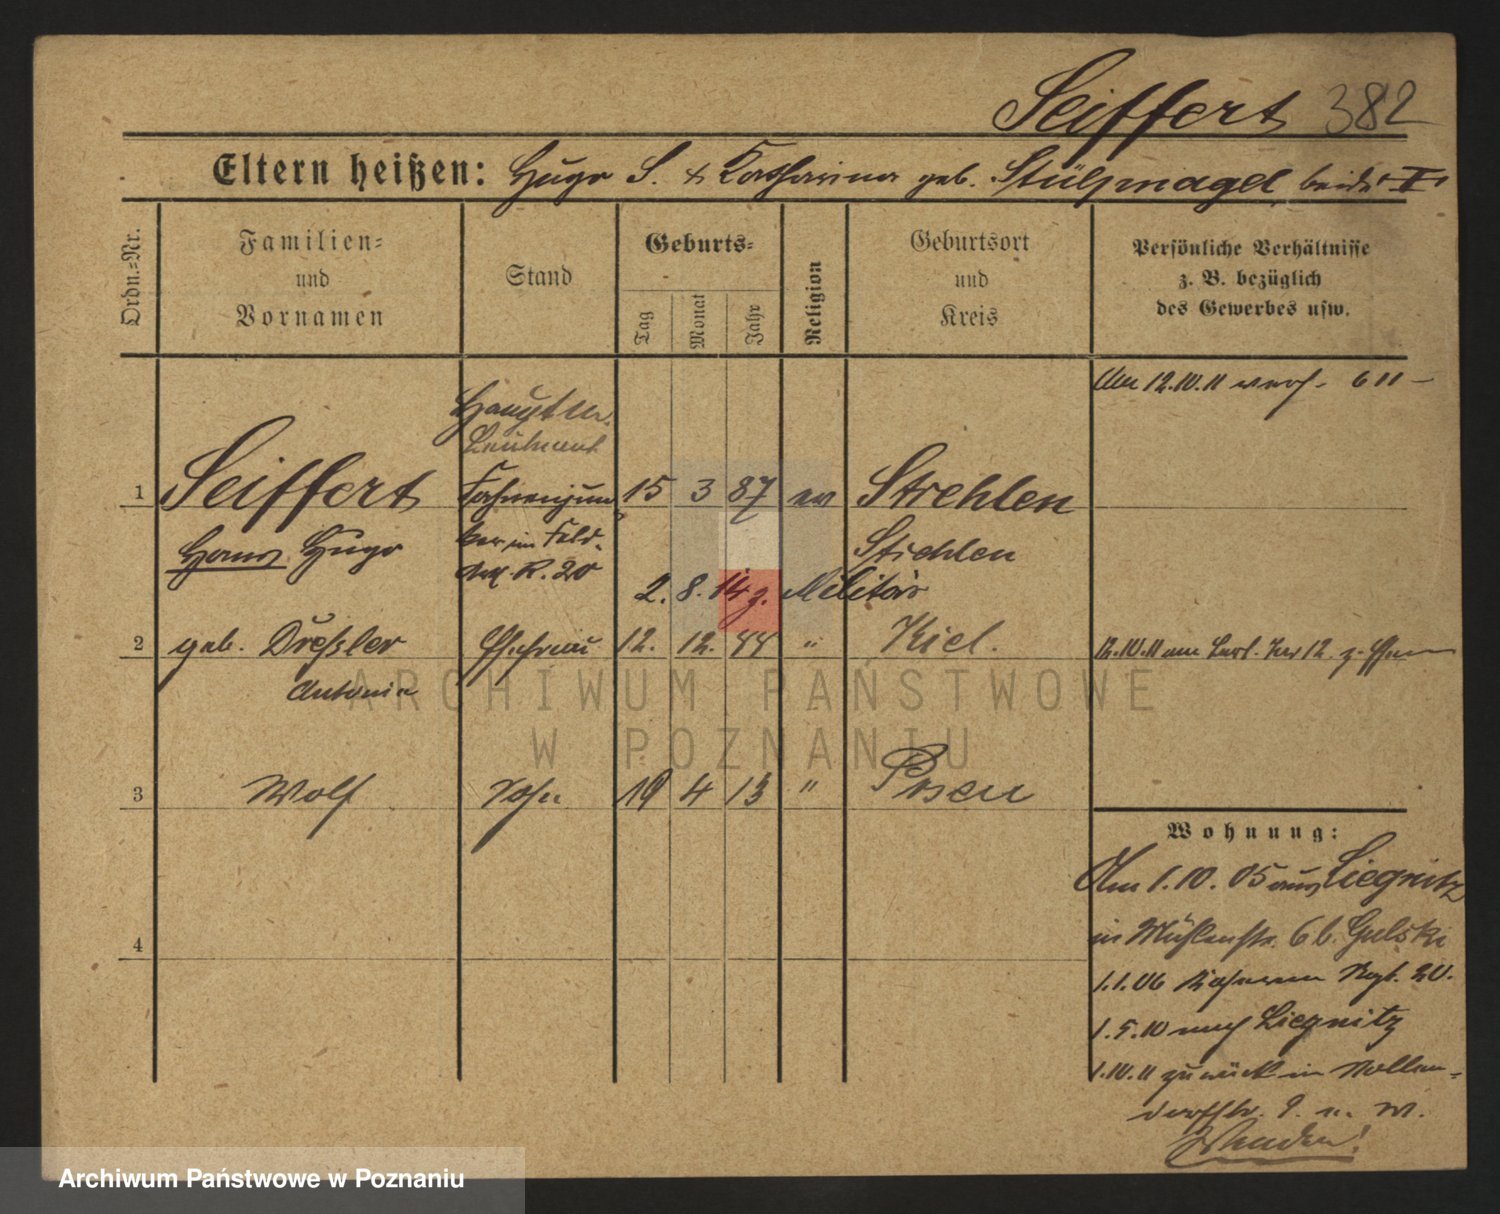 Seiffert 382
Eltern heißen: Hugo S. & Katharina geb. Stülpnagel, beide †
Ordn.=Nr.
Familien=
und
Vornamen
Stand
Geburts=
Tag
Monat
Jahr
Religion
Geburtsort
und
Kreis
Persönliche Verhältnisse
z. B. bezüglich
des Gewerbes usw.
Hauptm.
Leutnant
1 Seiffert Fahnenjun 15 3 87 ev Strehlen
Hans Hugo ker im Feld- Strehlen
Art. R. 20
2. 8. 14 z. Militär
2 geb. Dreßler Ehefrau 12. 12. 88 " Kiel.
Antonie
3 Wolf Sohn 19 4 13 " Posen
4
Am 12.10.11
12.10.11 am
Wohnung:
Am 1.10.05 aus Liegnitz
in Mühlenstr. 6 b. Gulski
1.1.06 Kasernen Regt. 20.
1.5.10 nach Liegnitz
1.10.11 zurück in Nollen=
dorfstr. 9. u. W.
Wenden!
ARCHIWUM PAŃSTWOWE
W POZNANIU
Archiwum Państwowe w Poznaniu